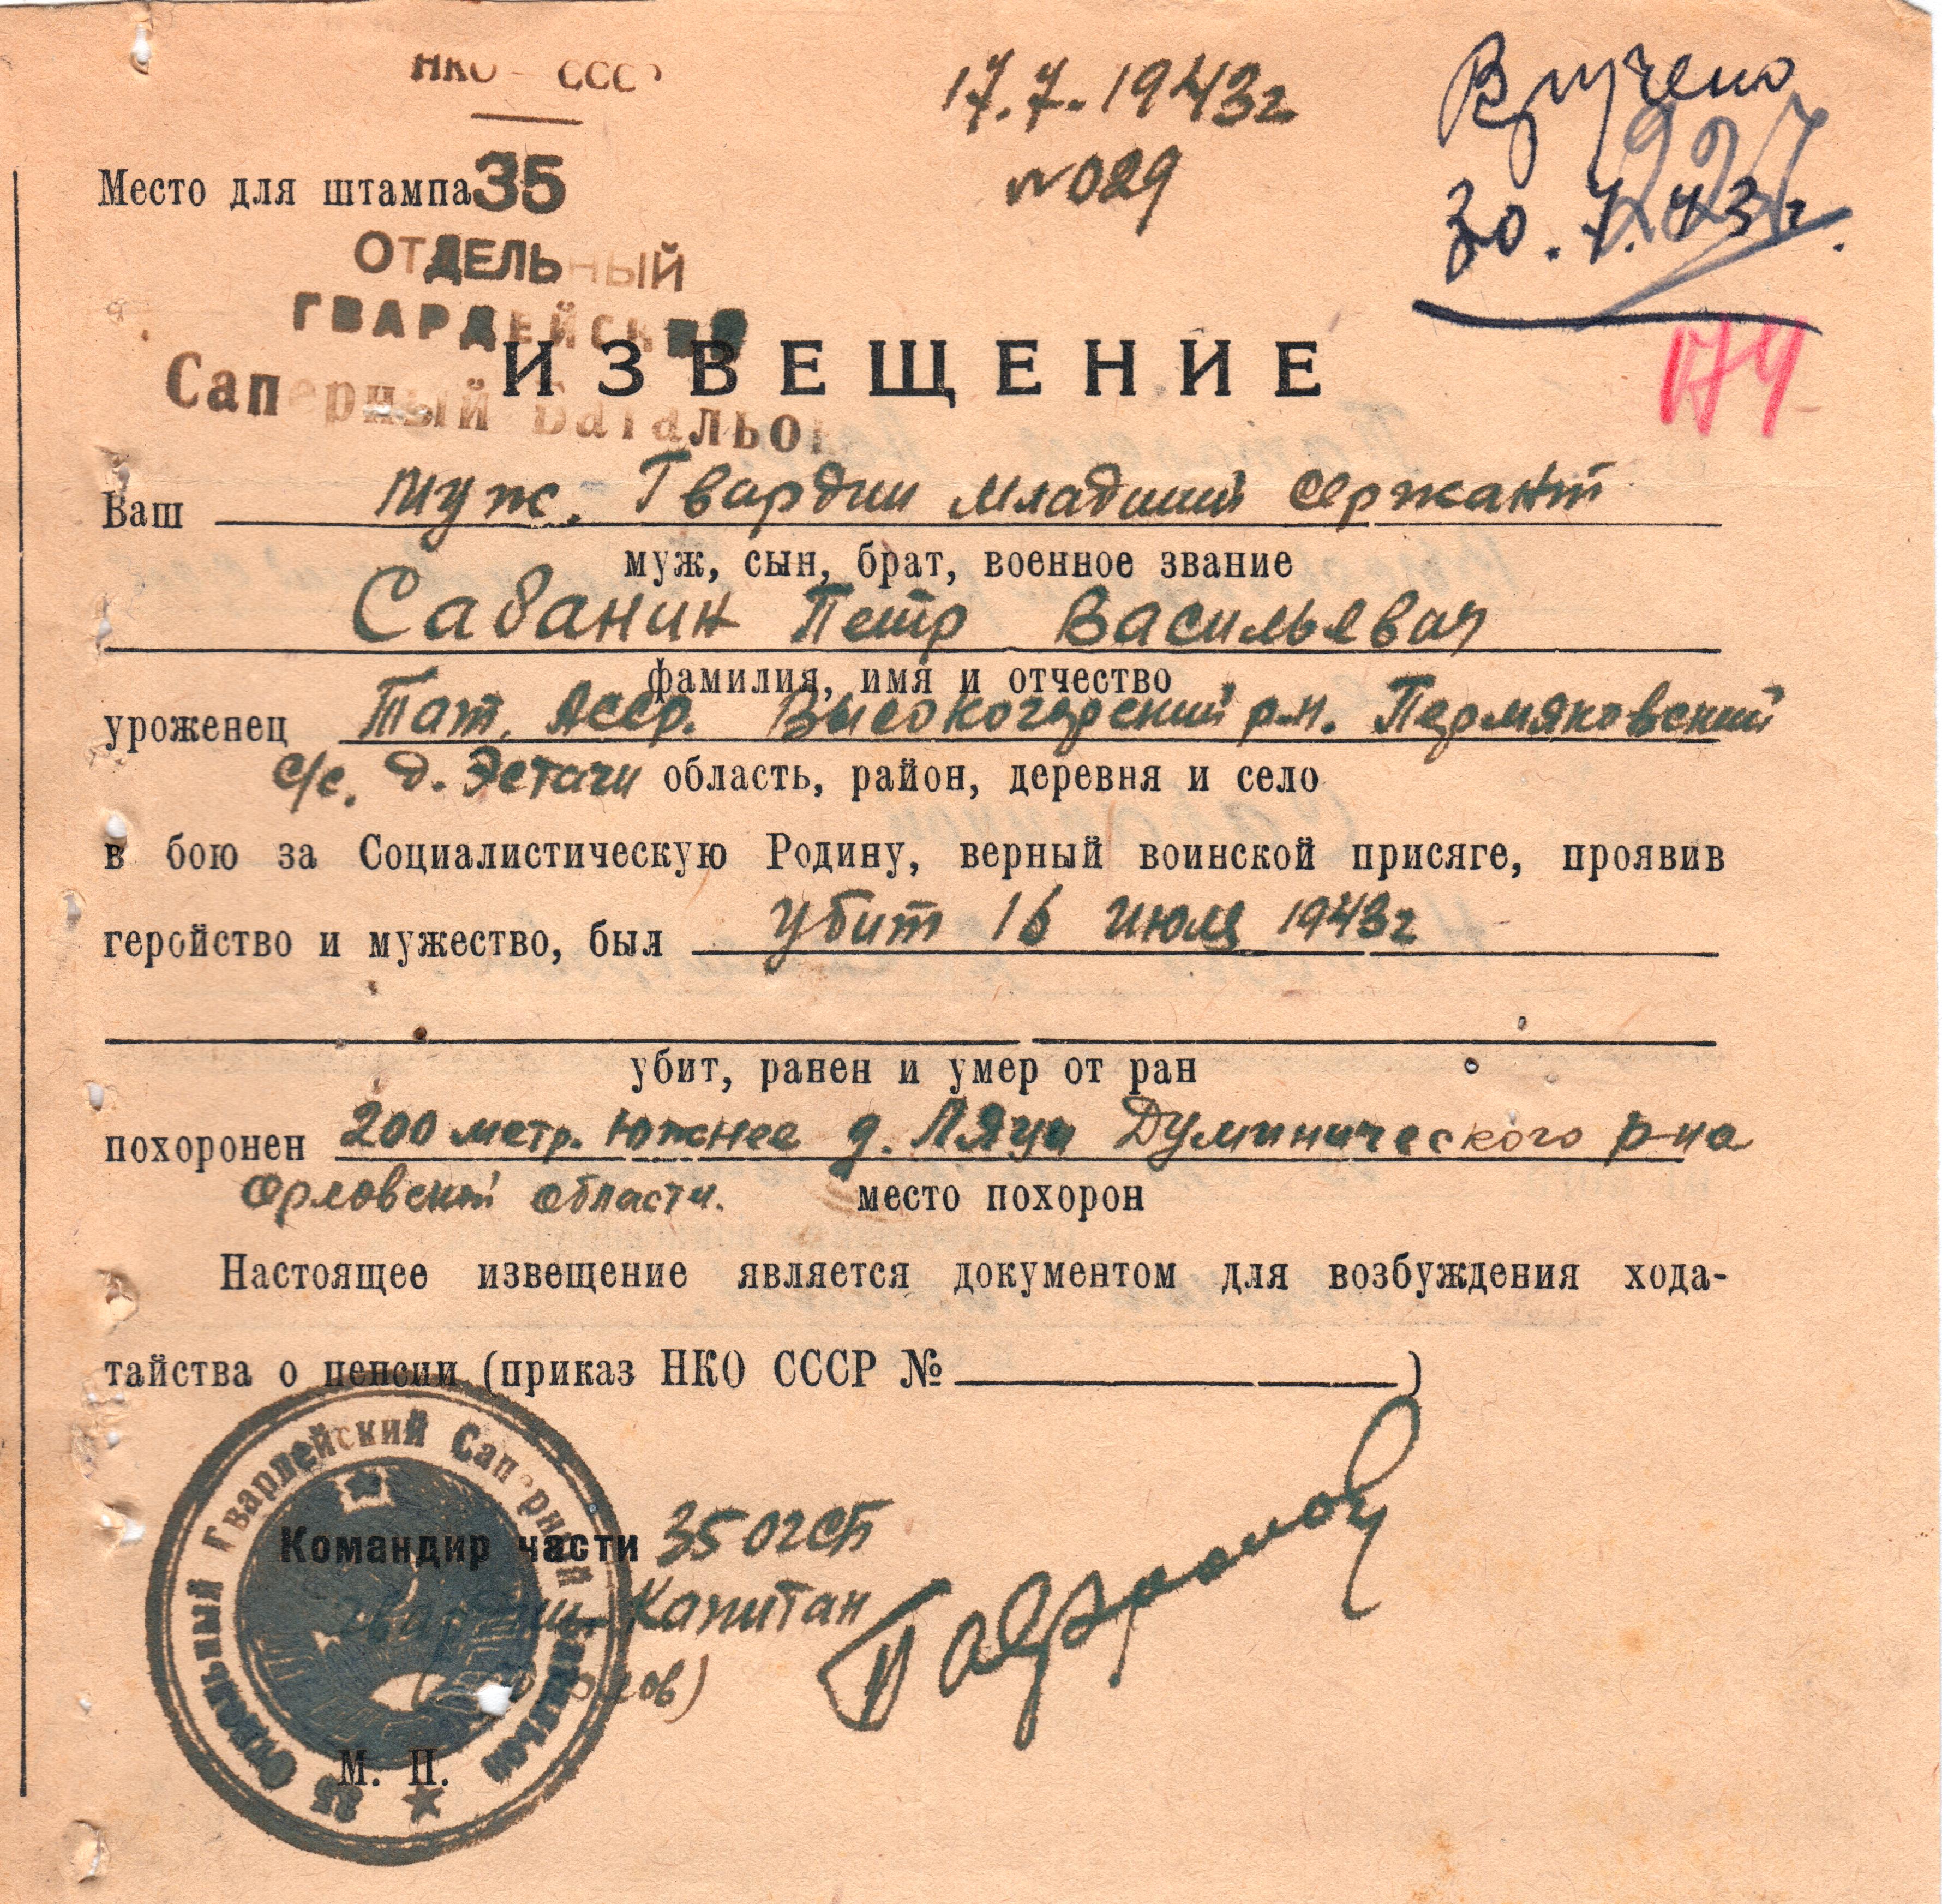 НКО СССР
17.7.1943г
Вручено
№029
227
30.7.43г.
Место для штампа 35
ОТДЕЛЬНЫЙ
ГВАРДЕЙСКИЙ
Саперный Батальон
ИЗВЕЩЕНИЕ
174
Ваш муж. Гвардии младший сержант
муж, сын, брат, военное звание
Сабанин Петр Васильевич
фамилия, имя и отчество
уроженец Тат. Асср. Высокогорский р.н. Пермяковский
с/с. д. Эстачи область, район, деревня и село
в бою за Социалистическую Родину, верный воинской присяге, проявив
геройство и мужество, был убит 16 июля 1943г
убит, ранен и умер от ран
похоронен 200 метр. южнее д. Ляды Думинического р-на
Орловской области. место похорон
Настоящее извещение является документом для возбуждения хода-
тайства о пенсии (приказ НКО СССР № )
35 Отдельный Гвардейский Саперный Батальон
Командир части 35 ОГСБ
гвардии Капитан
М. П.